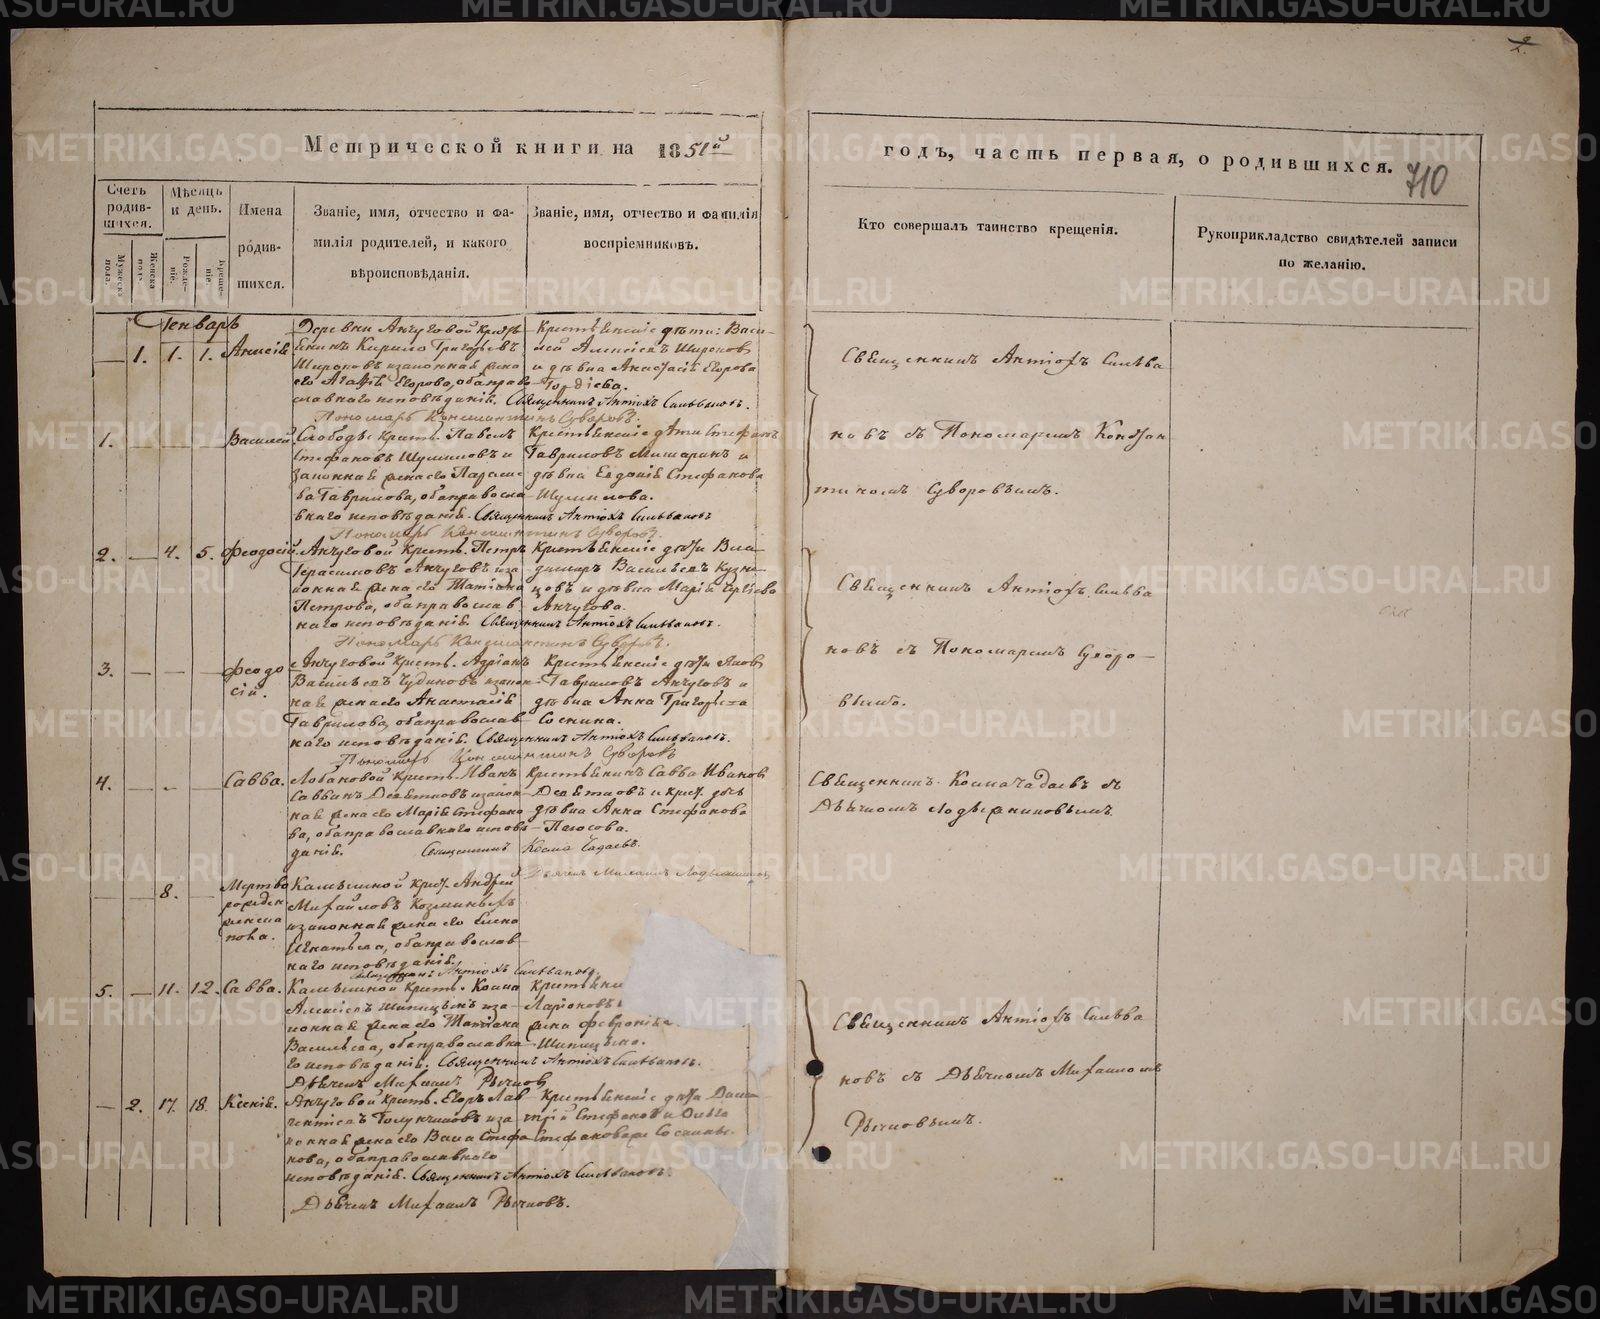 Метрической книги на 1851й
годъ, часть первая, о родившихся.
710
Счетъ родив-шихся.
Мужеска пола.
Женска пола.
Мѣсяцъ и день.
Рожде-нiе.
Креще-нiе.
Имена
родив-
шихся.
Званiе, имя, отчество и фа-
милiя родителей, и какого
вѣроисповѣданiя.
Званiе, имя, отчество и фамилiя
воспрiемниковъ.
Кто совершалъ таинство крещенiя.
Рукоприкладство свидѣтелей записи
по желанiю.
Генварь
1. 1. 1.
Деревни Анчуговой
Кирило Григорьевъ
Широковъ изаконная жена
его Агафiя Егорова, оба право
славнаго исповѣданiя. Священникъ Антiохъ Сильвановъ.
Пономарь Константинъ Суворовъ.
Крестьянскiе дѣти: Васи-
лей Алексѣевъ Широковъ
и дѣвка Анастасiя Егорова
Священникъ Антiохъ Сильва
новъ съ Пономаремъ Констан
тиномъ Суворовымъ.
1. Василей.
Слободы Крест. Павелъ
Стефановъ Шумиловъ и
законная жена его Параске
ва Гаврилова, оба правосла
внаго исповѣданiя. Священникъ Антiохъ Сильвановъ
Пономарь Константинъ Суворовъ.
Крестьянскiе дѣти Стефанъ
Гавриловъ Мишаринъ и
дѣвка Евдокiя Стефанова
Шумилова.
2. 4. 5. Феодосiй.
Анчуговой Крест. Петръ
Герасимовъ Анчуговъ иза
конная жена его Татiана
Петрова, оба православ
наго исповѣданiя. Священникъ Антiохъ Сильвановъ.
Пономарь Константинъ Суворовъ.
Крестьянскiе дѣти Вла-
димиръ Васильевъ Кузне-
цовъ и дѣвка Марiя
Анчугова.
Священникъ Антiохъ Сильва
новъ съ Пономаремъ Суворо-
вымъ.
3. Феодо
сiй.
Анчуговой Крест. Адрiанъ
Васильевъ Чудиновъ изакон-
ная жена его Анастасiя
Гаврилова, оба православ
наго исповѣданiя. Священникъ Антiохъ Сильвановъ.
Пономарь Константинъ Суворовъ
Крестьянскiе дѣти Яковъ
Гавриловъ Анчуговъ и
дѣвка Анна Григорьева
Соснина.
4. Савва.
Лобановой Крест. Иванъ
Саввинъ Девятковъ изакон
ная жена его Марiя Стефано
ва, оба православнаго исповѣ
данiя. Священникъ Козма Чадаевъ.
Крестьянинъ Савва Ивановъ
Девятковъ и Крест. дочь
дѣвка Анна Стефанова
Священникъ Козма Чадаевъ съ
8. Мертво
рожден
женска
пола.
Камышной Крест. Андрей
Михайловъ Козминыхъ
изаконная жена его Елена
Игнатьева, оба православ
наго исповѣданiя.
Священникъ Антiохъ Сильвановъ.
5. 11. 12. Савва.
Камышной Крест. Козма
Алексѣевъ Шипицынъ иза
конная жена его Татiана
Васильева, оба православна
го исповѣданiя. Священникъ Антiохъ Сильвановъ.
Дьячекъ Михаилъ Рычковъ
Ларiоновъ
жена Феврониья
Шипицына.
Священникъ Антiохъ Сильва
новъ съ Дьячкомъ Михаиломъ
Рычковымъ.
2. 17. 18. Ксенiя.
Анчуговой Крест. Егоръ Лав
рентiевъ Голунчиковъ иза
конная жена его Васса Стефа
нова, оба православнаго
исповѣданiя. Священникъ Антiохъ Сильвановъ.
Дьячекъ Михаилъ Рычковъ.